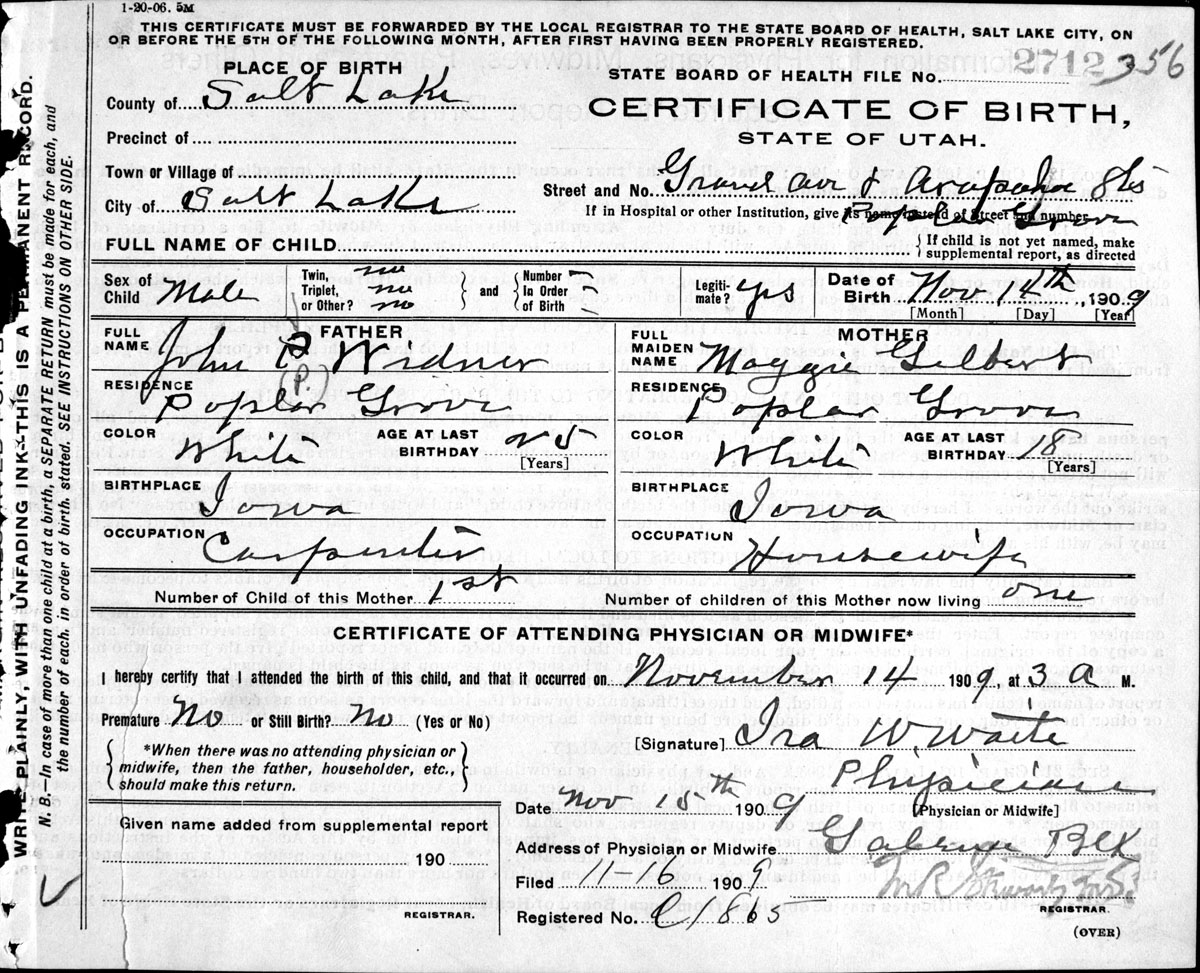 1-20-06. 5M
THIS CERTIFICATE MUST BE FORWARDED BY THE LOCAL REGISTRAR TO THE STATE BOARD OF HEALTH, SALT LAKE CITY, ON
OR BEFORE THE 5TH OF THE FOLLOWING MONTH, AFTER FIRST HAVING BEEN PROPERLY REGISTERED.
PLACE OF BIRTH
STATE BOARD OF HEALTH FILE No. 2712 356
County of Salt Lake
CERTIFICATE OF BIRTH,
STATE OF UTAH.
Precinct of
Town or Village of
Street and No. Grand Ave & Arapahoe Sts
City of Salt Lake
If in Hospital or other Institution, give its name instead of Street and number. Poplar Grove
FULL NAME OF CHILD
If child is not yet named, make
supplemental report, as directed
Sex of Child Male
Twin, Triplet, or Other? no no no
and
Number In Order of Birth
Legiti- mate? yes
Date of Birth Nov 14th, 1909
[Month] [Day] [Year]
FATHER
FULL NAME John P. Widner
(P.)
MOTHER
FULL MAIDEN NAME Maggie Gilbert
RESIDENCE Poplar Grove
RESIDENCE Poplar Grove
COLOR White
AGE AT LAST BIRTHDAY 25 [Years]
COLOR White
AGE AT LAST BIRTHDAY 18 [Years]
BIRTHPLACE Iowa
BIRTHPLACE Iowa
OCCUPATION Carpenter
OCCUPATION Housewife
Number of Child of this Mother 1st
Number of children of this Mother now living one
CERTIFICATE OF ATTENDING PHYSICIAN OR MIDWIFE*
I hereby certify that I attended the birth of this child, and that it occurred on November 14 1909, at 3 a M.
Premature No or Still Birth? no (Yes or No)
[Signature] Ira W. Waite
*When there was no attending physician or
midwife, then the father, householder, etc.,
should make this return.
Physician
Date Nov 15th 1909 [Physician or Midwife]
Given name added from supplemental report
190
REGISTRAR.
Address of Physician or Midwife Galena Blk
Filed 11-16 1909
REGISTRAR.
Registered No. C1865
(OVER)
WRITE PLAINLY, WITH UNFADING INK--THIS IS A PERMANENT RECORD.
N. B.—In case of more than one child at a birth, a SEPARATE RETURN must be made for each, and
the number of each, in order of birth, stated. SEE INSTRUCTIONS ON OTHER SIDE.